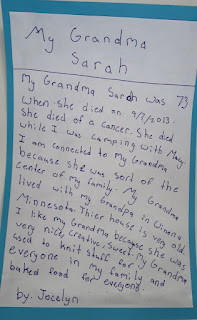 My Grandma
Sarah
My Grandma Sarah was 73
when she died on 9/2/2013.
She died of a cancer. She died
while I was camping with Mary.
I am connected to my Grandma
because she was sort of the
center of my family. My Grandma
lived with my Grandpa in Winona
Minnesota. Thier house is very old.
I like my Grandma because she was
very nice, creative, sweet. My Grandma
used to knit staff for
everyone in my family and
baked food for everyone.
by: Jocelyn